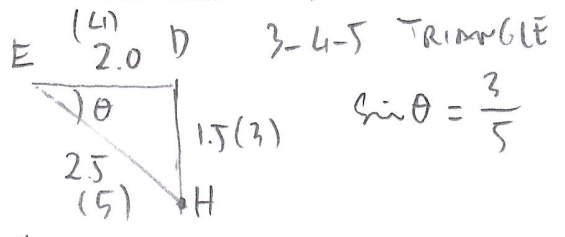 (4)
E 2.0 D 3-4-5 TRIANGLE
θ 1.5(3) sin θ = 3/5
2.5
(5) H